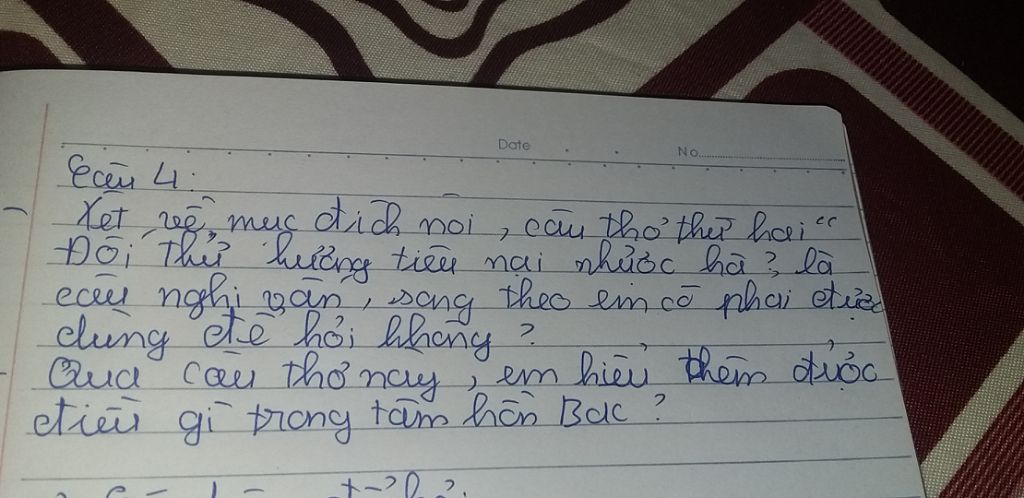 Date
No
Câu 4:
- Xét về mục đích nói, câu thơ thứ hai “
Đối thử lương tiêu nại nhược hà? là
câu nghi vấn, song theo em có phải được
dùng để hỏi không?
- Qua câu thơ này, em hiểu thêm được
điều gì trong tâm hồn Bác?